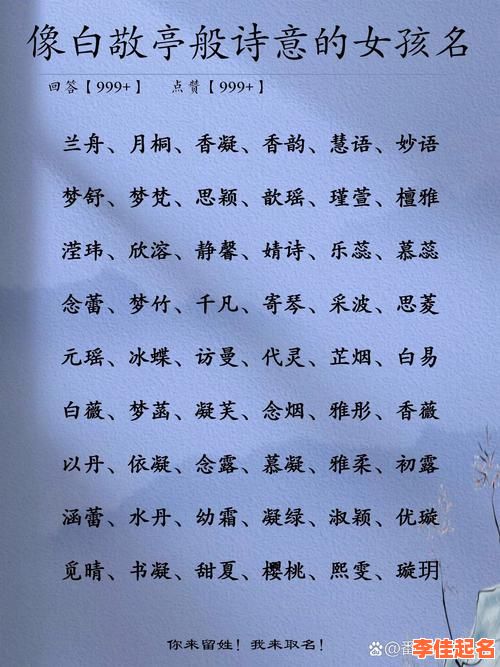 像白敬亭般诗意的女孩名
回答【999+】 点赞【999+】
兰舟、月桐、香凝、香韵、慧语、妙语
梦舒、梦梵、思颖、歆瑶、瑾萱、檀雅
滢玮、欣溶、静馨、婧诗、乐蕊、慕蕊
念蕾、梦竹、千凡、寄琴、采波、思菱
元瑶、冰蝶、访曼、代灵、芷烟、白易
白薇、梦菡、凝芙、念烟、雅彤、香薇
以丹、依凝、念露、慕凝、雅柔、初露
涵蕾、水丹、幼霜、凝绿、淑颖、优璇
觅晴、书凝、甜夏、樱桃、熙雯、璇玥
你来留姓！我来取名！
李佳起名